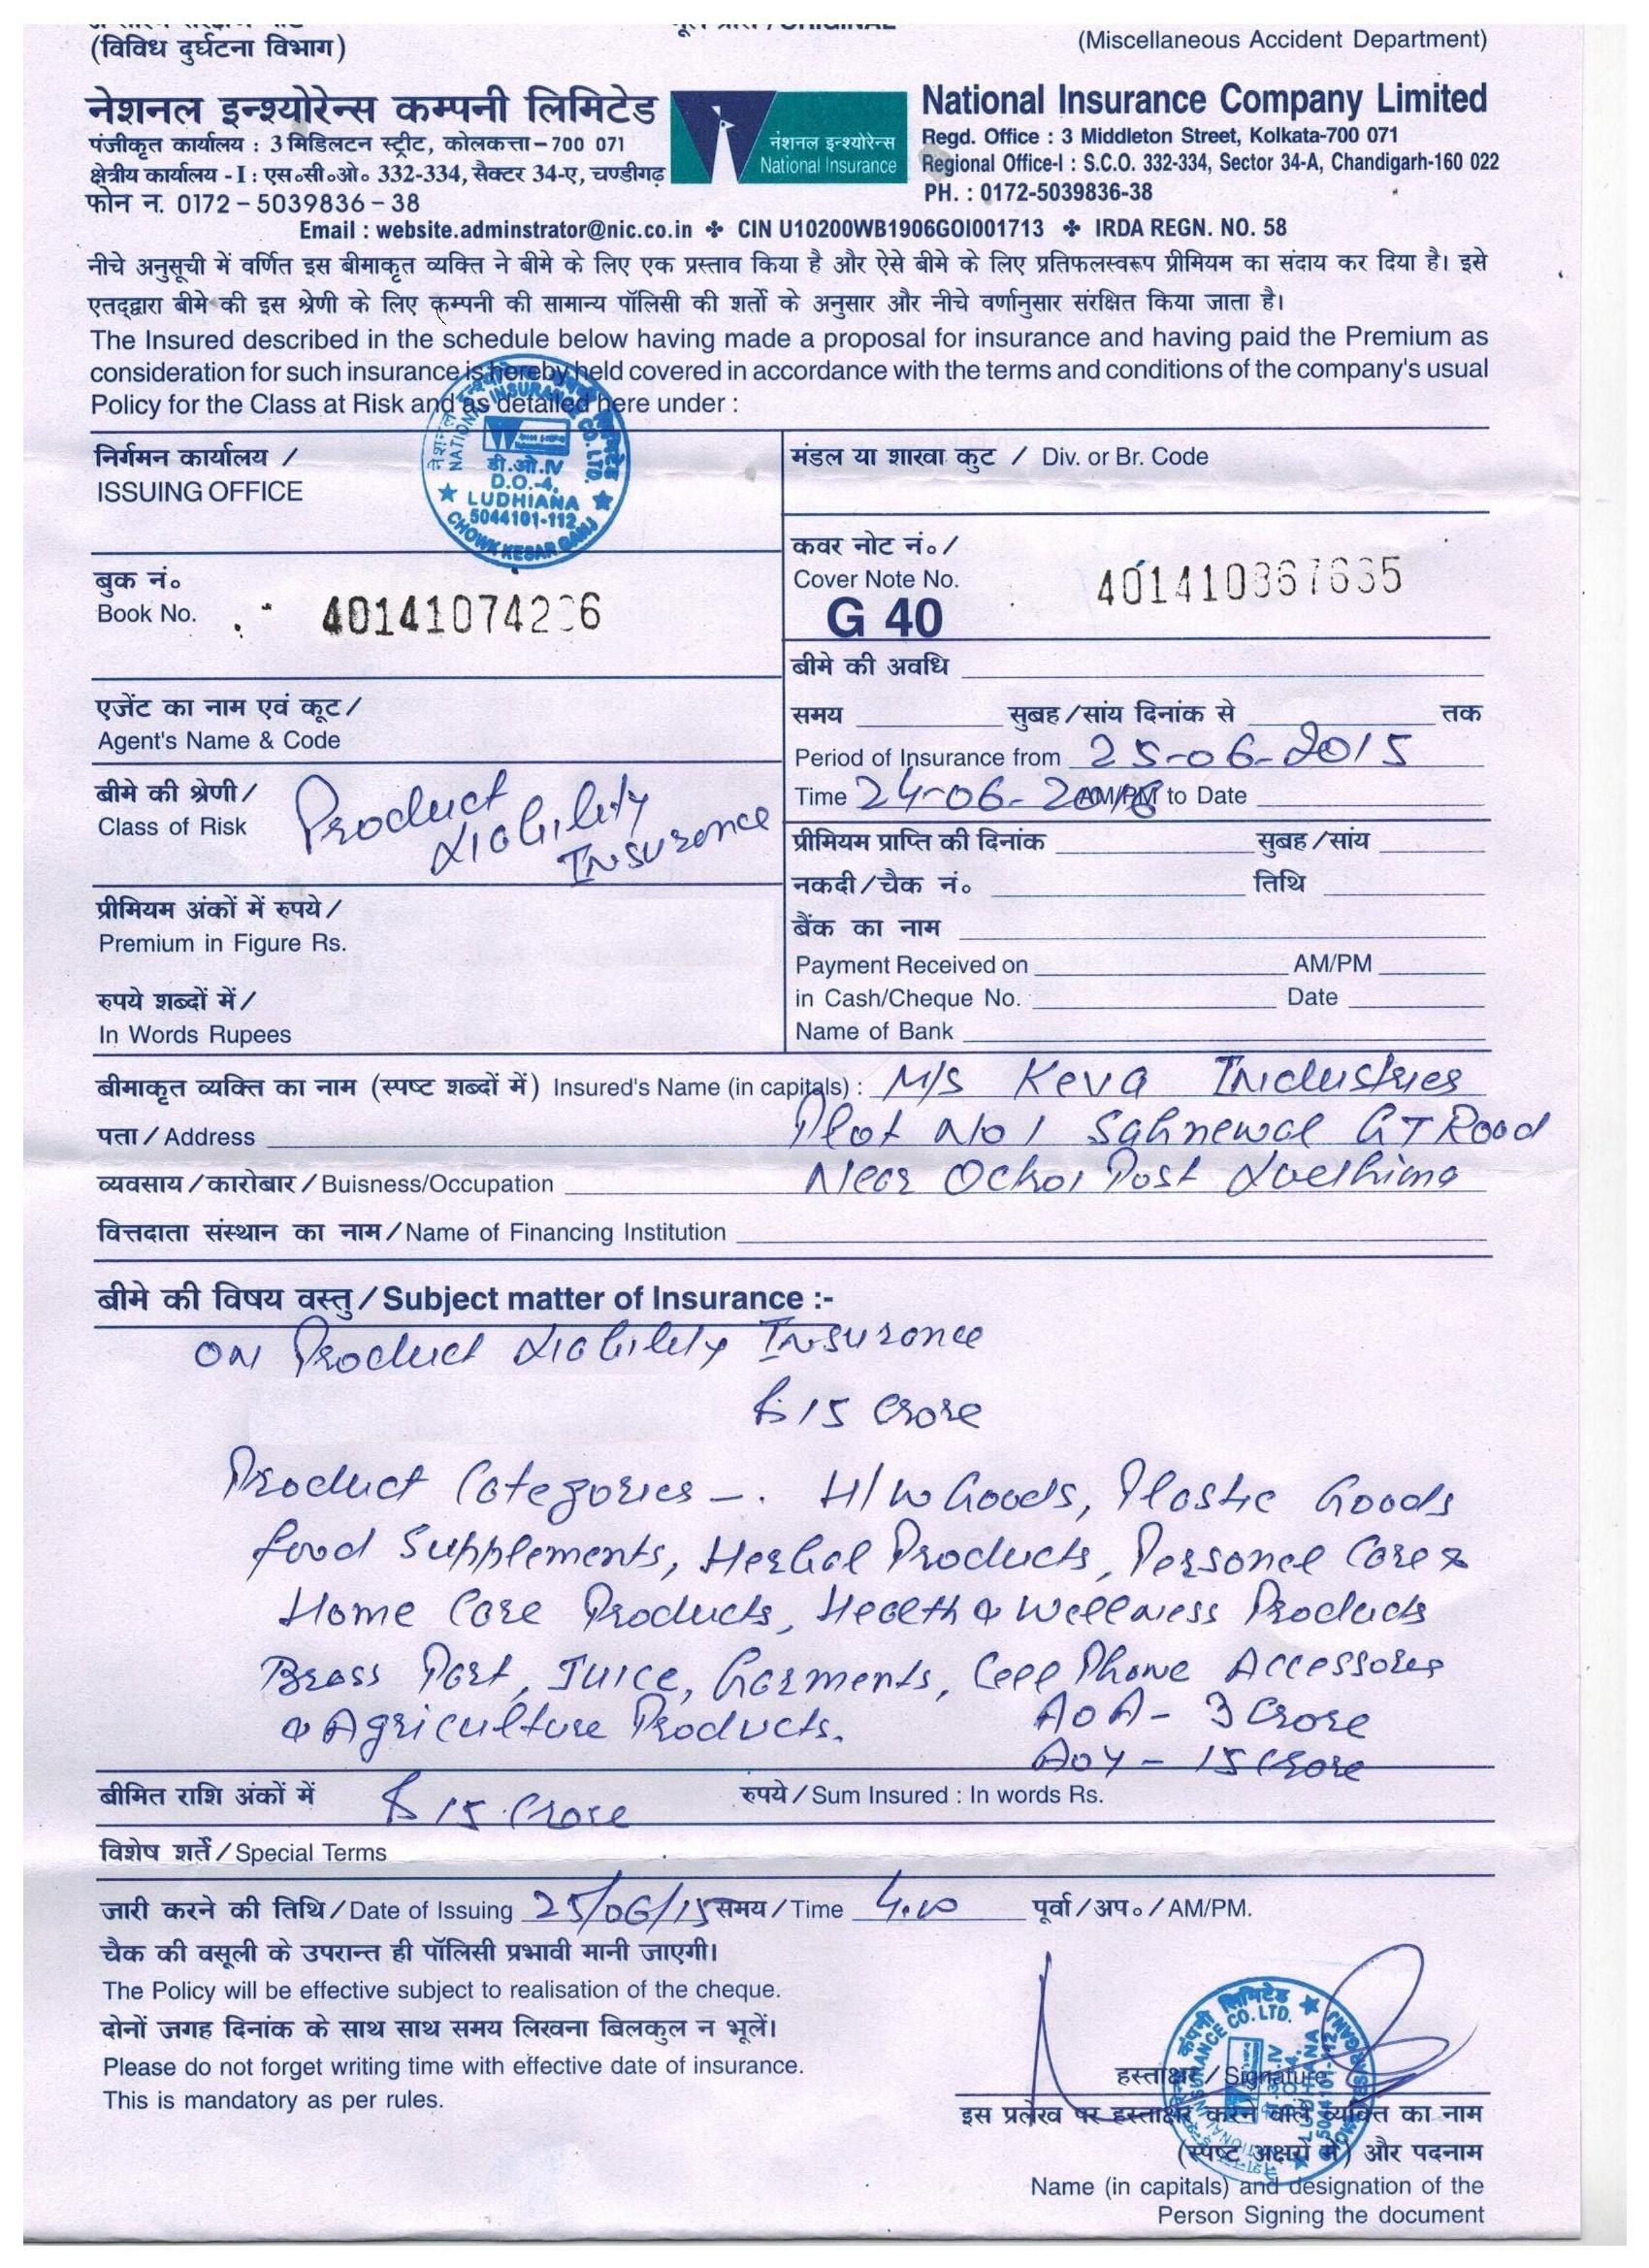 (विविध दुर्घटना विभाग)
(Miscellaneous Accident Department)
नेशनल इन्श्योरेन्स कम्पनी लिमिटेड
पंजीकृत कार्यालय : 3 मिडिलटन स्ट्रीट, कोलकत्ता – 700 071
क्षेत्रीय कार्यालय - I : एस॰सी॰ओ॰ 332-334, सैक्टर 34-ए, चण्डीगढ़
फोन न. 0172 – 5039836 – 38
नेशनल इन्श्योरेन्स
National Insurance
National Insurance Company Limited
Regd. Office : 3 Middleton Street, Kolkata-700 071
Regional Office-I : S.C.O. 332-334, Sector 34-A, Chandigarh-160 022
PH. : 0172-5039836-38
Email : website.adminstrator@nic.co.in ✤ CIN U10200WB1906GOI001713 ✤ IRDA REGN. NO. 58
नीचे अनुसूची में वर्णित इस बीमाकृत व्यक्ति ने बीमे के लिए एक प्रस्ताव किया है और ऐसे बीमे के लिए प्रतिफलस्वरूप प्रीमियम का संदाय कर दिया है। इसे
एतद्द्वारा बीमे की इस श्रेणी के लिए कम्पनी की सामान्य पॉलिसी की शर्तो के अनुसार और नीचे वर्णानुसार संरक्षित किया जाता है।
The Insured described in the schedule below having made a proposal for insurance and having paid the Premium as
consideration for such insurance is hereby held covered in accordance with the terms and conditions of the company's usual
Policy for the Class at Risk and as detailed here under :
निर्गमन कार्यालय /
ISSUING OFFICE
NATIONAL INSURANCE CO. LTD.
डी.ओ.IV
D.O.-4.
LUDHIANA
5044101-112
CHOWK KESAR GANJ
मंडल या शाखा कुट / Div. or Br. Code
बुक नं॰
Book No.
कवर नोट नं॰ /
Cover Note No.
G 40
बीमे की अवधि
एजेंट का नाम एवं कूट /
Agent's Name & Code
समय सुबह / सांय दिनांक से तक
Period of Insurance from 25-06-2015
Time 24-06-2016 AM/PM to Date
बीमे की श्रेणी /
Class of Risk
Product
Liability
Insurance
प्रीमियम प्राप्ति की दिनांक सुबह / सांय
नकदी / चैक नं॰ तिथि
बैंक का नाम
प्रीमियम अंकों में रुपये /
Premium in Figure Rs.
Payment Received on AM/PM
in Cash/Cheque No. Date
Name of Bank
रुपये शब्दों में /
In Words Rupees
बीमाकृत व्यक्ति का नाम (स्पष्ट शब्दों में) Insured's Name (in capitals) : M/S Keva Industries
पता / Address Plot No 1 Sahnewal GT Road
व्यवसाय / कारोबार / Buisness/Occupation Near Octroi Post Ludhiana
वित्तदाता संस्थान का नाम / Name of Financing Institution
बीमे की विषय वस्तु / Subject matter of Insurance :-
ON Product Liability Insurance
Rs 15 Crore
Product Categories –. H/W Goods, Plastic Goods
food Supplements, Herbal Products, Personel Care &
Home Care Products, Health & Wellness Products
Brass Part, Juice, Garments, Cell Phone Accessories
& Agriculture Products.
AOA – 3 Crore
AOY – 15 Crore
बीमित राशि अंकों में Rs 15 Crore रुपये / Sum Insured : In words Rs.
विशेष शर्ते / Special Terms
जारी करने की तिथि / Date of Issuing 25/06/15 समय / Time 4.00 पूर्वा / अप॰ / AM/PM.
चैक की वसूली के उपरान्त ही पॉलिसी प्रभावी मानी जाएगी।
The Policy will be effective subject to realisation of the cheque.
दोनों जगह दिनांक के साथ साथ समय लिखना बिलकुल न भूलें।
Please do not forget writing time with effective date of insurance.
This is mandatory as per rules.
हस्ताक्षर / Signature
इस प्रलेख पर हस्ताक्षर करने वाले व्यक्ति का नाम
(स्पष्ट अक्षरों में) और पदनाम
Name (in capitals) and designation of the
Person Signing the document